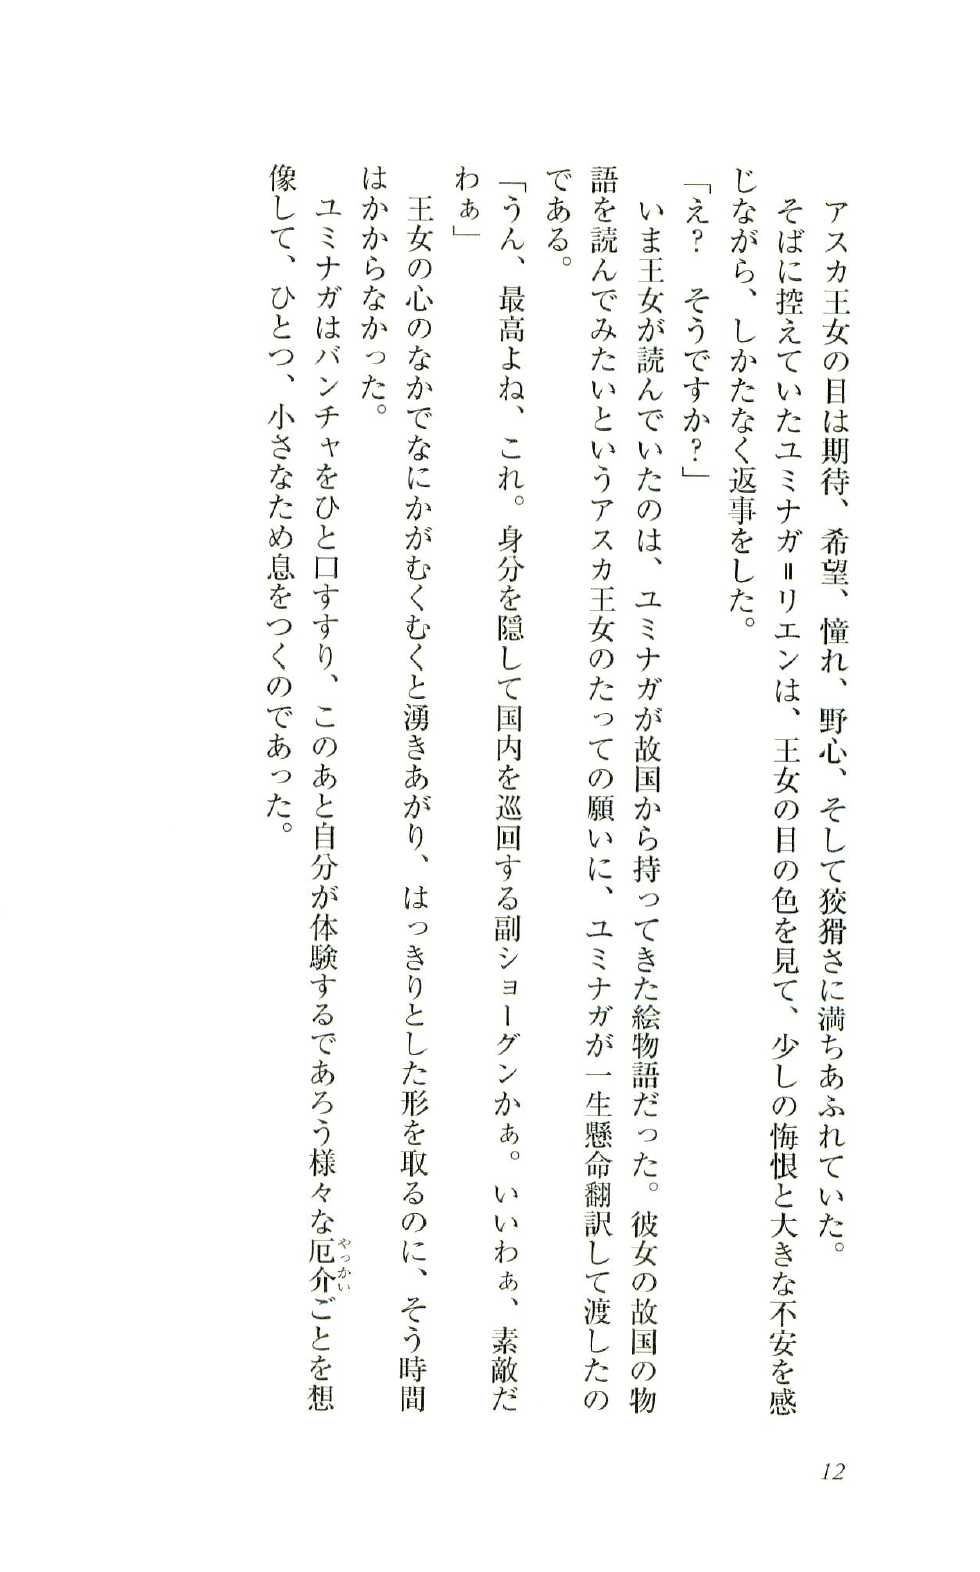 アスカ王女の目は期待、希望、憧れ、野心、そして狡猾さに満ちあふれていた。
そばに控えていたユミナガ＝リエンは、王女の目の色を見て、少しの悔恨と大きな不安を感
じながら、しかたなく返事をした。
「え？　そうですか？」
いま王女が読んでいたのは、ユミナガが故国から持ってきた絵物語だった。彼女の故国の物
語を読んでみたいというアスカ王女のたっての願いに、ユミナガが一生懸命翻訳して渡したの
である。
「うん、最高よね、これ。身分を隠して国内を巡回する副ショーグンかぁ。いいわぁ、素敵だ
わぁ」
王女の心のなかでなにかがむくむくと湧きあがり、はっきりとした形を取るのに、そう時間
はかからなかった。
ユミナガはバンチャをひと口すすり、このあと自分が体験するであろう様々な厄介ごとを想
やっかい
像して、ひとつ、小さなため息をつくのであった。
12